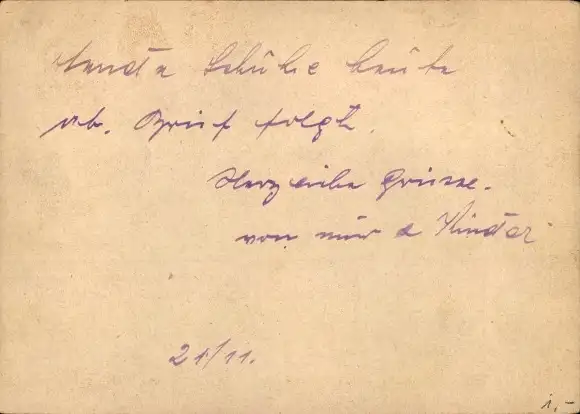 Sende Schuhe heute
ab. Brief folgt.
Herzliche Grüsse.
von mir & Kinder
21/11.
1,-